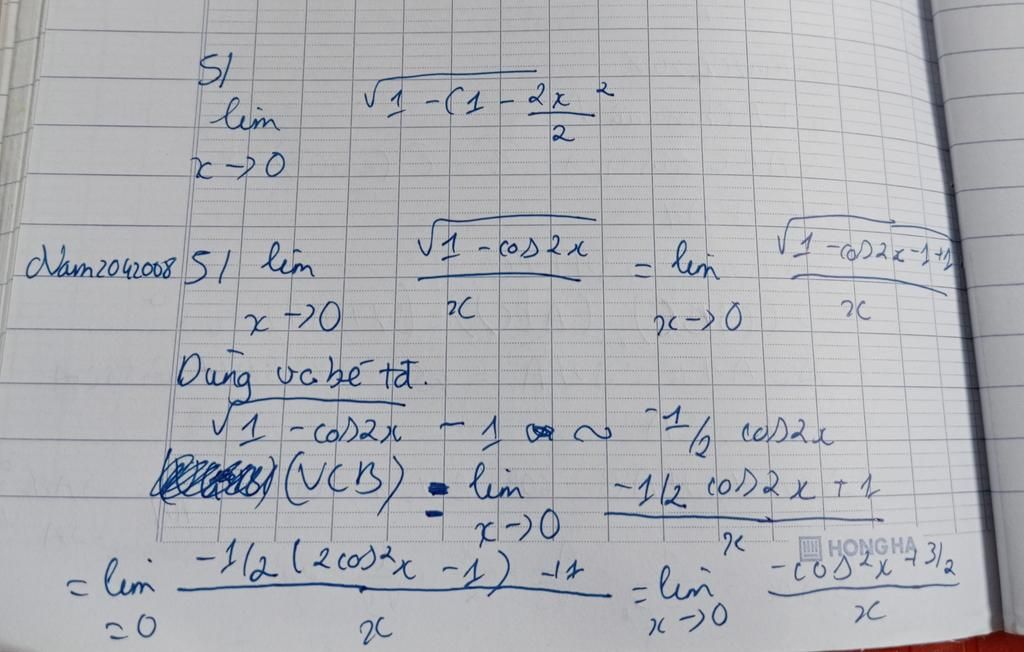 5/
lim x→0 √1 - (1 - 2x²/2
Nam2042008 5/ lim x→0 √1 - cos2x / x = lim x→0 √1 - cos2x - 1 + 1 / x
Dùng vc bé tđ.
√1 - cos2x - 1 ~ -1/2 cos2x
(VCB) = lim x→0 -1/2 cos2x + 1 / x
HONG HA
= lim = 0 -1/2 (2cos²x - 1) + 1 / x = lim x→0 -cos²x + 3/2 / x